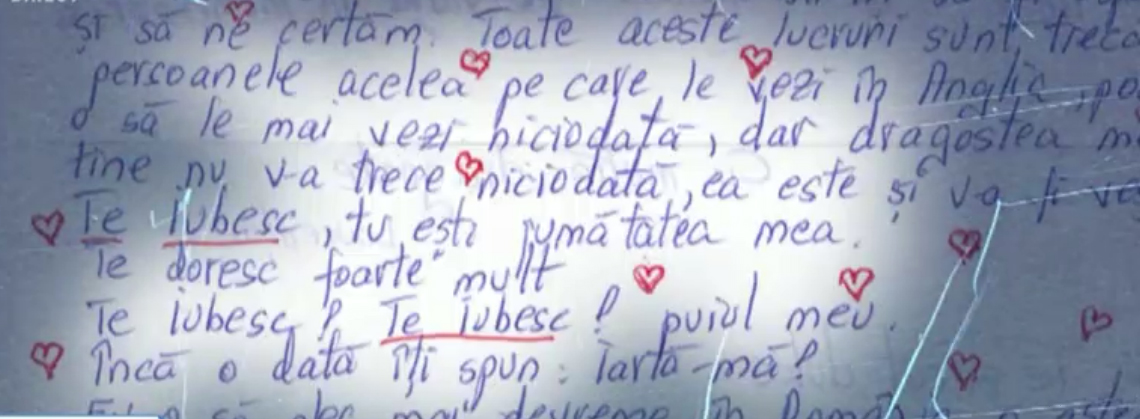 și să ne certăm. Toate aceste lucruri sunt
persoanele acelea pe care le vezi în Anglia,
o să le mai vezi niciodată, dar dragostea
tine nu v-a trece niciodată, ea este și v-a fi
Te iubesc, tu ești jumătatea mea.
Te doresc foarte mult
Te iubesc! Te iubesc! puiul meu.
Încă o dată îți spun: iartă-mă!
mai devreme în